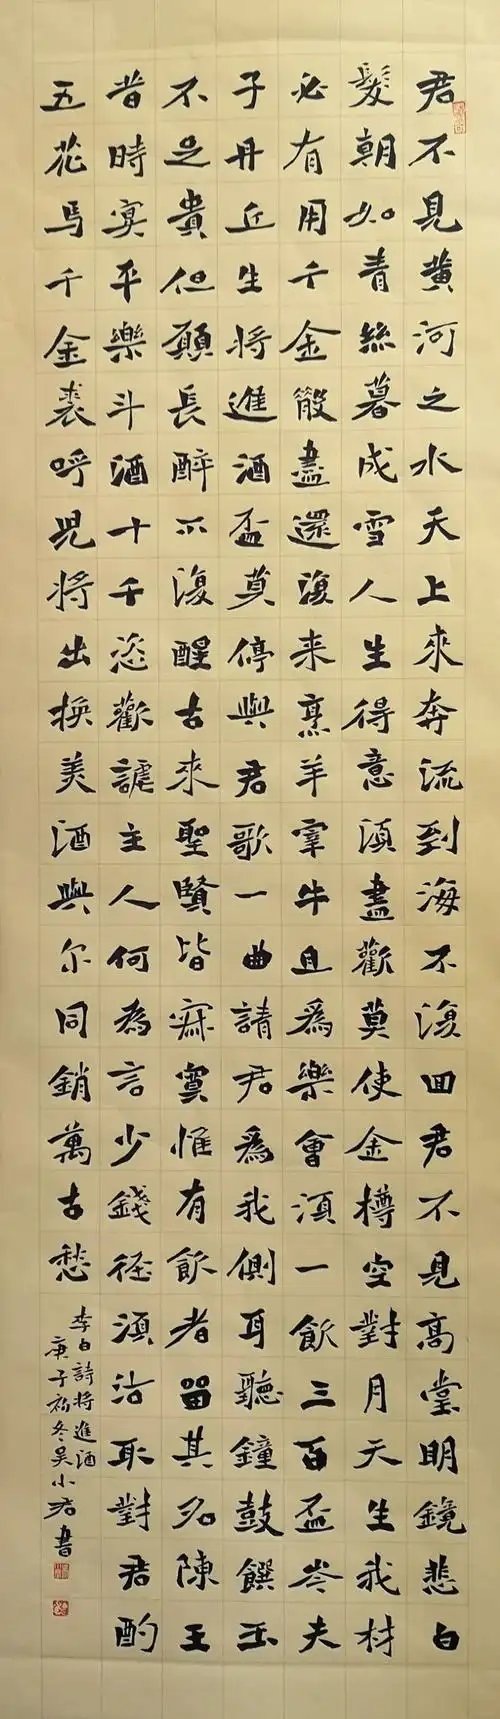 君不見黃河之水天上來奔流到海不復回君不見高堂明鏡悲白
髮朝如青絲暮成雪人生得意須盡歡莫使金樽空對月天生我材
必有用千金散盡還復来烹羊宰牛且爲樂會須一飲三百盃岑夫
子丹丘生將進酒盃莫停與君歌一曲請君爲我側耳聽鐘鼓饌玉
不足貴但願長醉不復醒古來聖賢皆寂寞惟有飲者留其名陳王
昔時宴平樂斗酒十千恣歡謔主人何為言少錢徑須沽取對君酌
五花馬千金裘呼兒將出換美酒與尔同銷萬古愁
李白詩將進酒
庚子初冬吴小君書